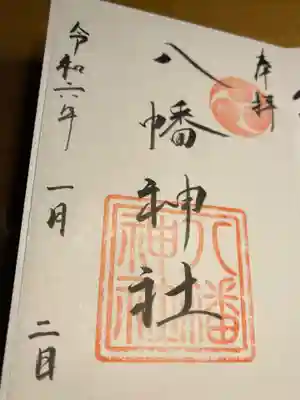 奉拝
八幡神社
八幡神社
令和六年 一月 二日